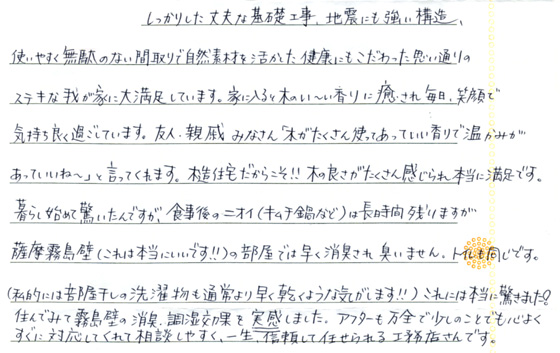 しっかりした丈夫な基礎工事、地震にも強い構造、
使いやすく無駄のない間取りで自然素材を活かた健康にもこだわった思い通りの
ステキな我が家に大満足しています。家に入ると木のい〜い香りに癒され毎日、笑顔で
気持ち良く過ごしています。友人・親戚 みなさん「木がたくさん使ってあっていい香りで温かみが
あっていいね〜」と言ってくれます。木造住宅だからこそ!!木の良さがたくさん感じられ本当に満足です。
暮らし始めて驚いたんですが、食事後のニオイ(キムチ鍋など)は長時間残りますが
薩摩霧島壁(これは本当にいいです!!)の部屋では早く消臭され臭いません。トイレも同じです。
(私的には部屋干しの洗濯物も通常より早く乾くような気がします!!)これには本当に驚きました!!
住んでみて霧島壁の消臭、調湿効果を実感しました。アフターも万全で少しのことでも心よく
すぐに対応してくれて相談しやすく、一生、信頼して任せられる工務店さんです。